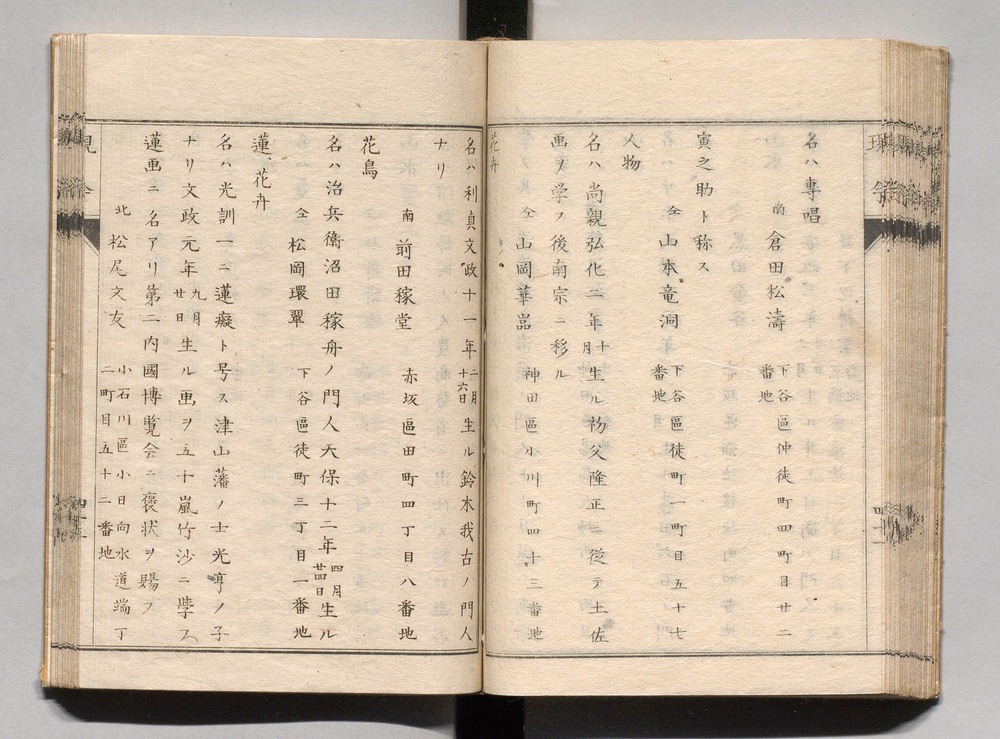 名ハ專唱
南 倉田松濤 下谷區仲徒町四町目廿二番地
寅之助ト称ス
仝 山本竜洞 下谷區徒町一町目五十七番地
人物
名ハ尚親弘化二年十月生ル初父隆正ニ從テ土佐
画ヲ学フ後南宗ニ移ル
仝 山岡華岊 神田區小川町四十三番地
花卉
名ハ利貞文政十一年二月十六日生ル鈴木我古ノ門人
ナリ
南 前田稼堂 赤坂區田町四丁目八番地
花鳥
名ハ治兵衛沼田稼舟ノ門人天保十二年四月廿四日生ル
仝 松岡環翠 下谷區徒町三丁目一番地
蓮花卉
名ハ光訓一ニ蓮癡ト号ス津山藩ノ士光亨ノ子
ナリ文政元年九月廿日生ル画ヲ五十嵐竹沙ニ学ヘ
蓮画ニ名アリ第二内國博覧会ニ褒状ヲ賜フ
北 松尾文友 小石川區小日向水道端丁二町目五十二番地